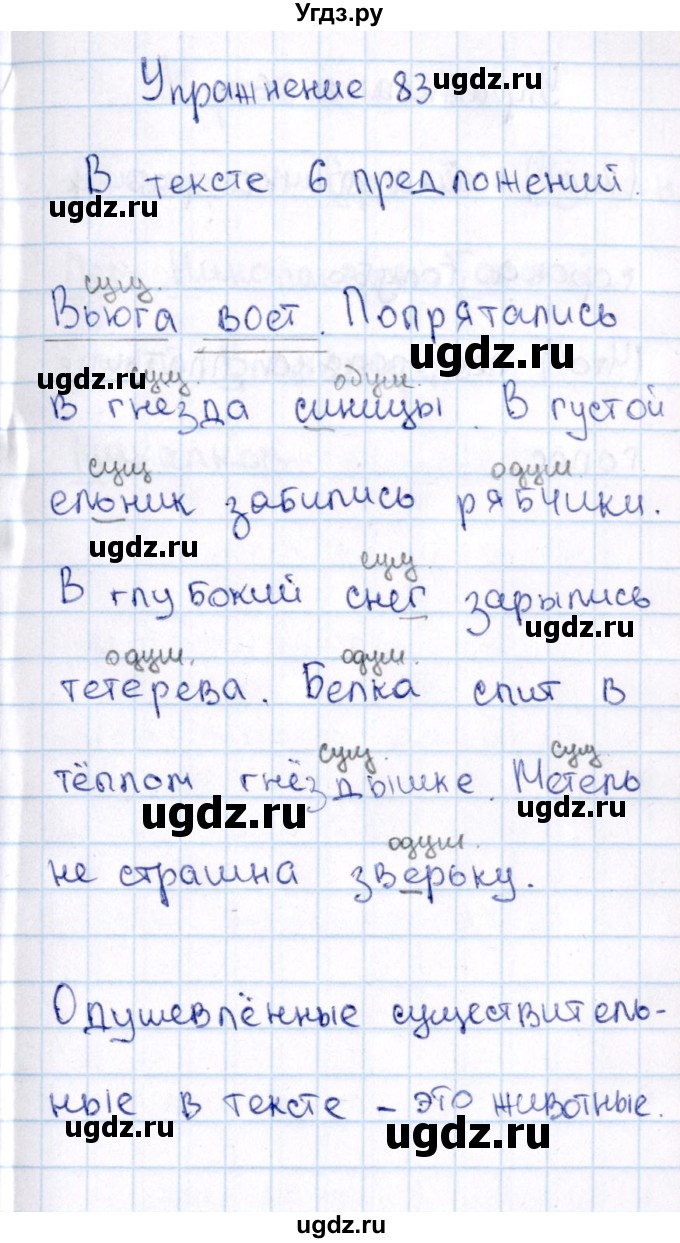 Угдз.ру
Упражнение 83
ugdz.ru
В тексте 6 предложений.
ugdz.ru
сущ.
Вьюга воет. Попрятались
ugdz.ru
сущ. одуш.
в гнёзда синицы. В густой
сущ одуш.
ельник забились рябчики.
ugdz.ru
сущ.
В глубокий снег зарылись
ugdz.ru
одуш. одуш.
тетерева. Белка спит в
сущ. сущ.
тёплом гнёздышке. Метель
ugdz.ru ugdz.ru
одуш.
не страшна зверьку.
Одушевлённые существитель-
ные в тексте – это животные.
ugdz.ru ugdz.ru
ugdz.ru